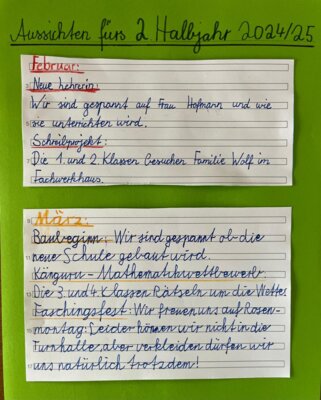 Aussichten fürs 2 Halbjahr 2024/25
Februar:
Neue Lehrerin:
Wir sind gespannt auf Frau Hofmann und wie
sie unterrichten wird.
Schreibprojekt:
Die 1. und 2. Klassen besuchen Familie Wolf im
Fachwerkhaus.
März:
Baubeginn: Wir sind gespannt ob die
neue Schule gebaut wird.
Känguru-Mathematikwettbewerb:
Die 3. und 4. Klassen Rätseln um die Wette.
Faschingsfest: Wir freuen uns auf Rosen-
montag. Leider können wir nicht in die
Turnhalle, aber verkleiden dürfen wir
uns natürlich trotzdem!